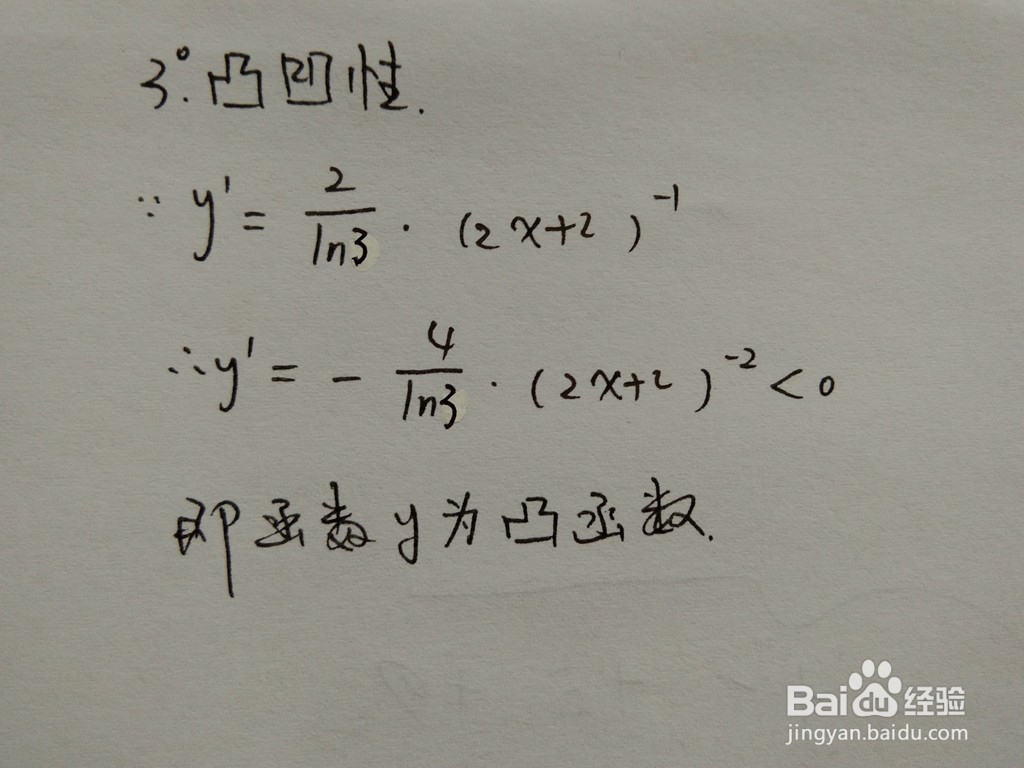 3°.凸凹性.
∵ y' = 2/ln3 · (2x+2)^-1
∴ y' = - 4/ln3 · (2x+2)^-2 < 0
即函数y为凸函数.
Baidu经验
jingyan.baidu.com